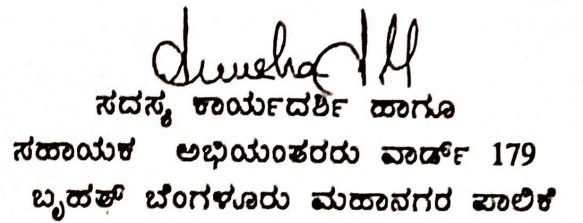 ಸದಸ್ಯ ಕಾರ್ಯದರ್ಶಿ ಹಾಗೂ
ಸಹಾಯಕ ಅಭಿಯಂತರರು ವಾರ್ಡ್ 179
ಬೃಹತ್ ಬೆಂಗಳೂರು ಮಹಾನಗರ ಪಾಲಿಕೆ